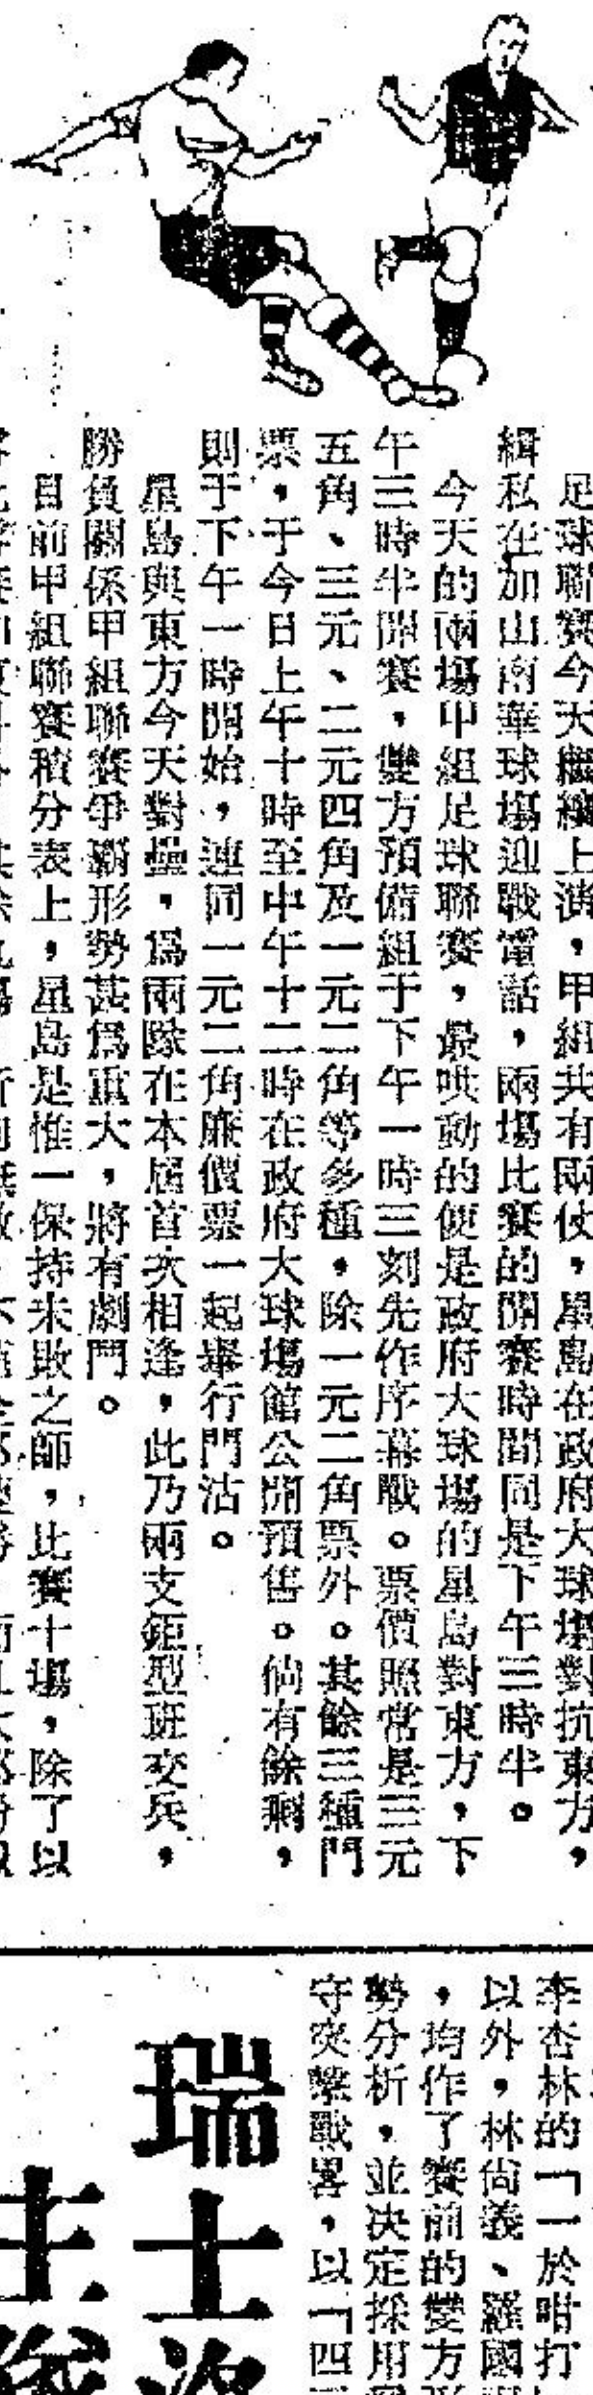 足球聯賽今天繼續上演，甲組共有兩仗，星島在政府大球塲對抗東方，
緝私在加山南華球塲迎戰電話，兩塲比賽的開賽時間同是下午三時半。
今天的兩塲甲組足球聯賽，最哄動的便是政府大球塲的星島對東方，下
午三時半開賽，雙方預備組于下午一時三刻先作序幕戰。票價照常是三元
五角、三元、二元四角及一元二角等多種，除一元二角票外。其餘三種門
票，于今日上午十時至中午十二時在政府大球塲館公開預售。倘有餘剩，
則于下午一時開始，連同一元二角廉價票一起舉行門沽。
星島與東方今天對壘，爲兩隊在本屆首次相逢，此乃兩支鉅型班交兵，
勝負關係甲組聯賽爭霸形勢甚爲重大，將有劇鬥。
目前甲組聯賽積分表上，星島是惟一保持未敗之師，比賽十塲，除了以
李杏林的「一於咁打
以外，林尙義、羅國
，均作了賽前的雙方形
勢分析，並決定採用
守突擊戰畧，以「四
瑞士